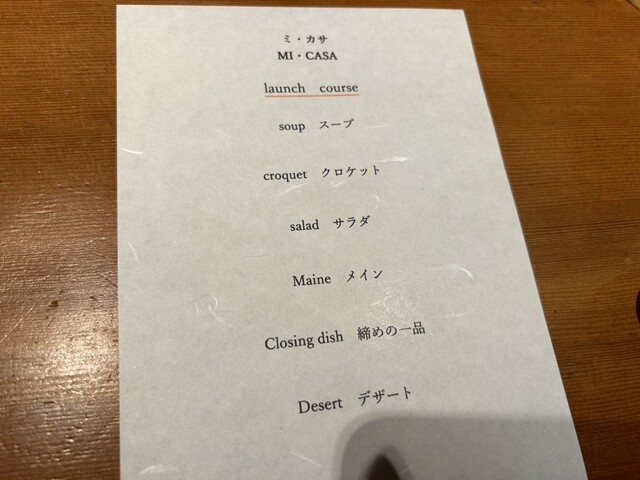 ミ・カサ
MI・CASA
launch course
soup スープ
croquet クロケット
salad サラダ
Maine メイン
Closing dish 締めの一品
Desert デザート